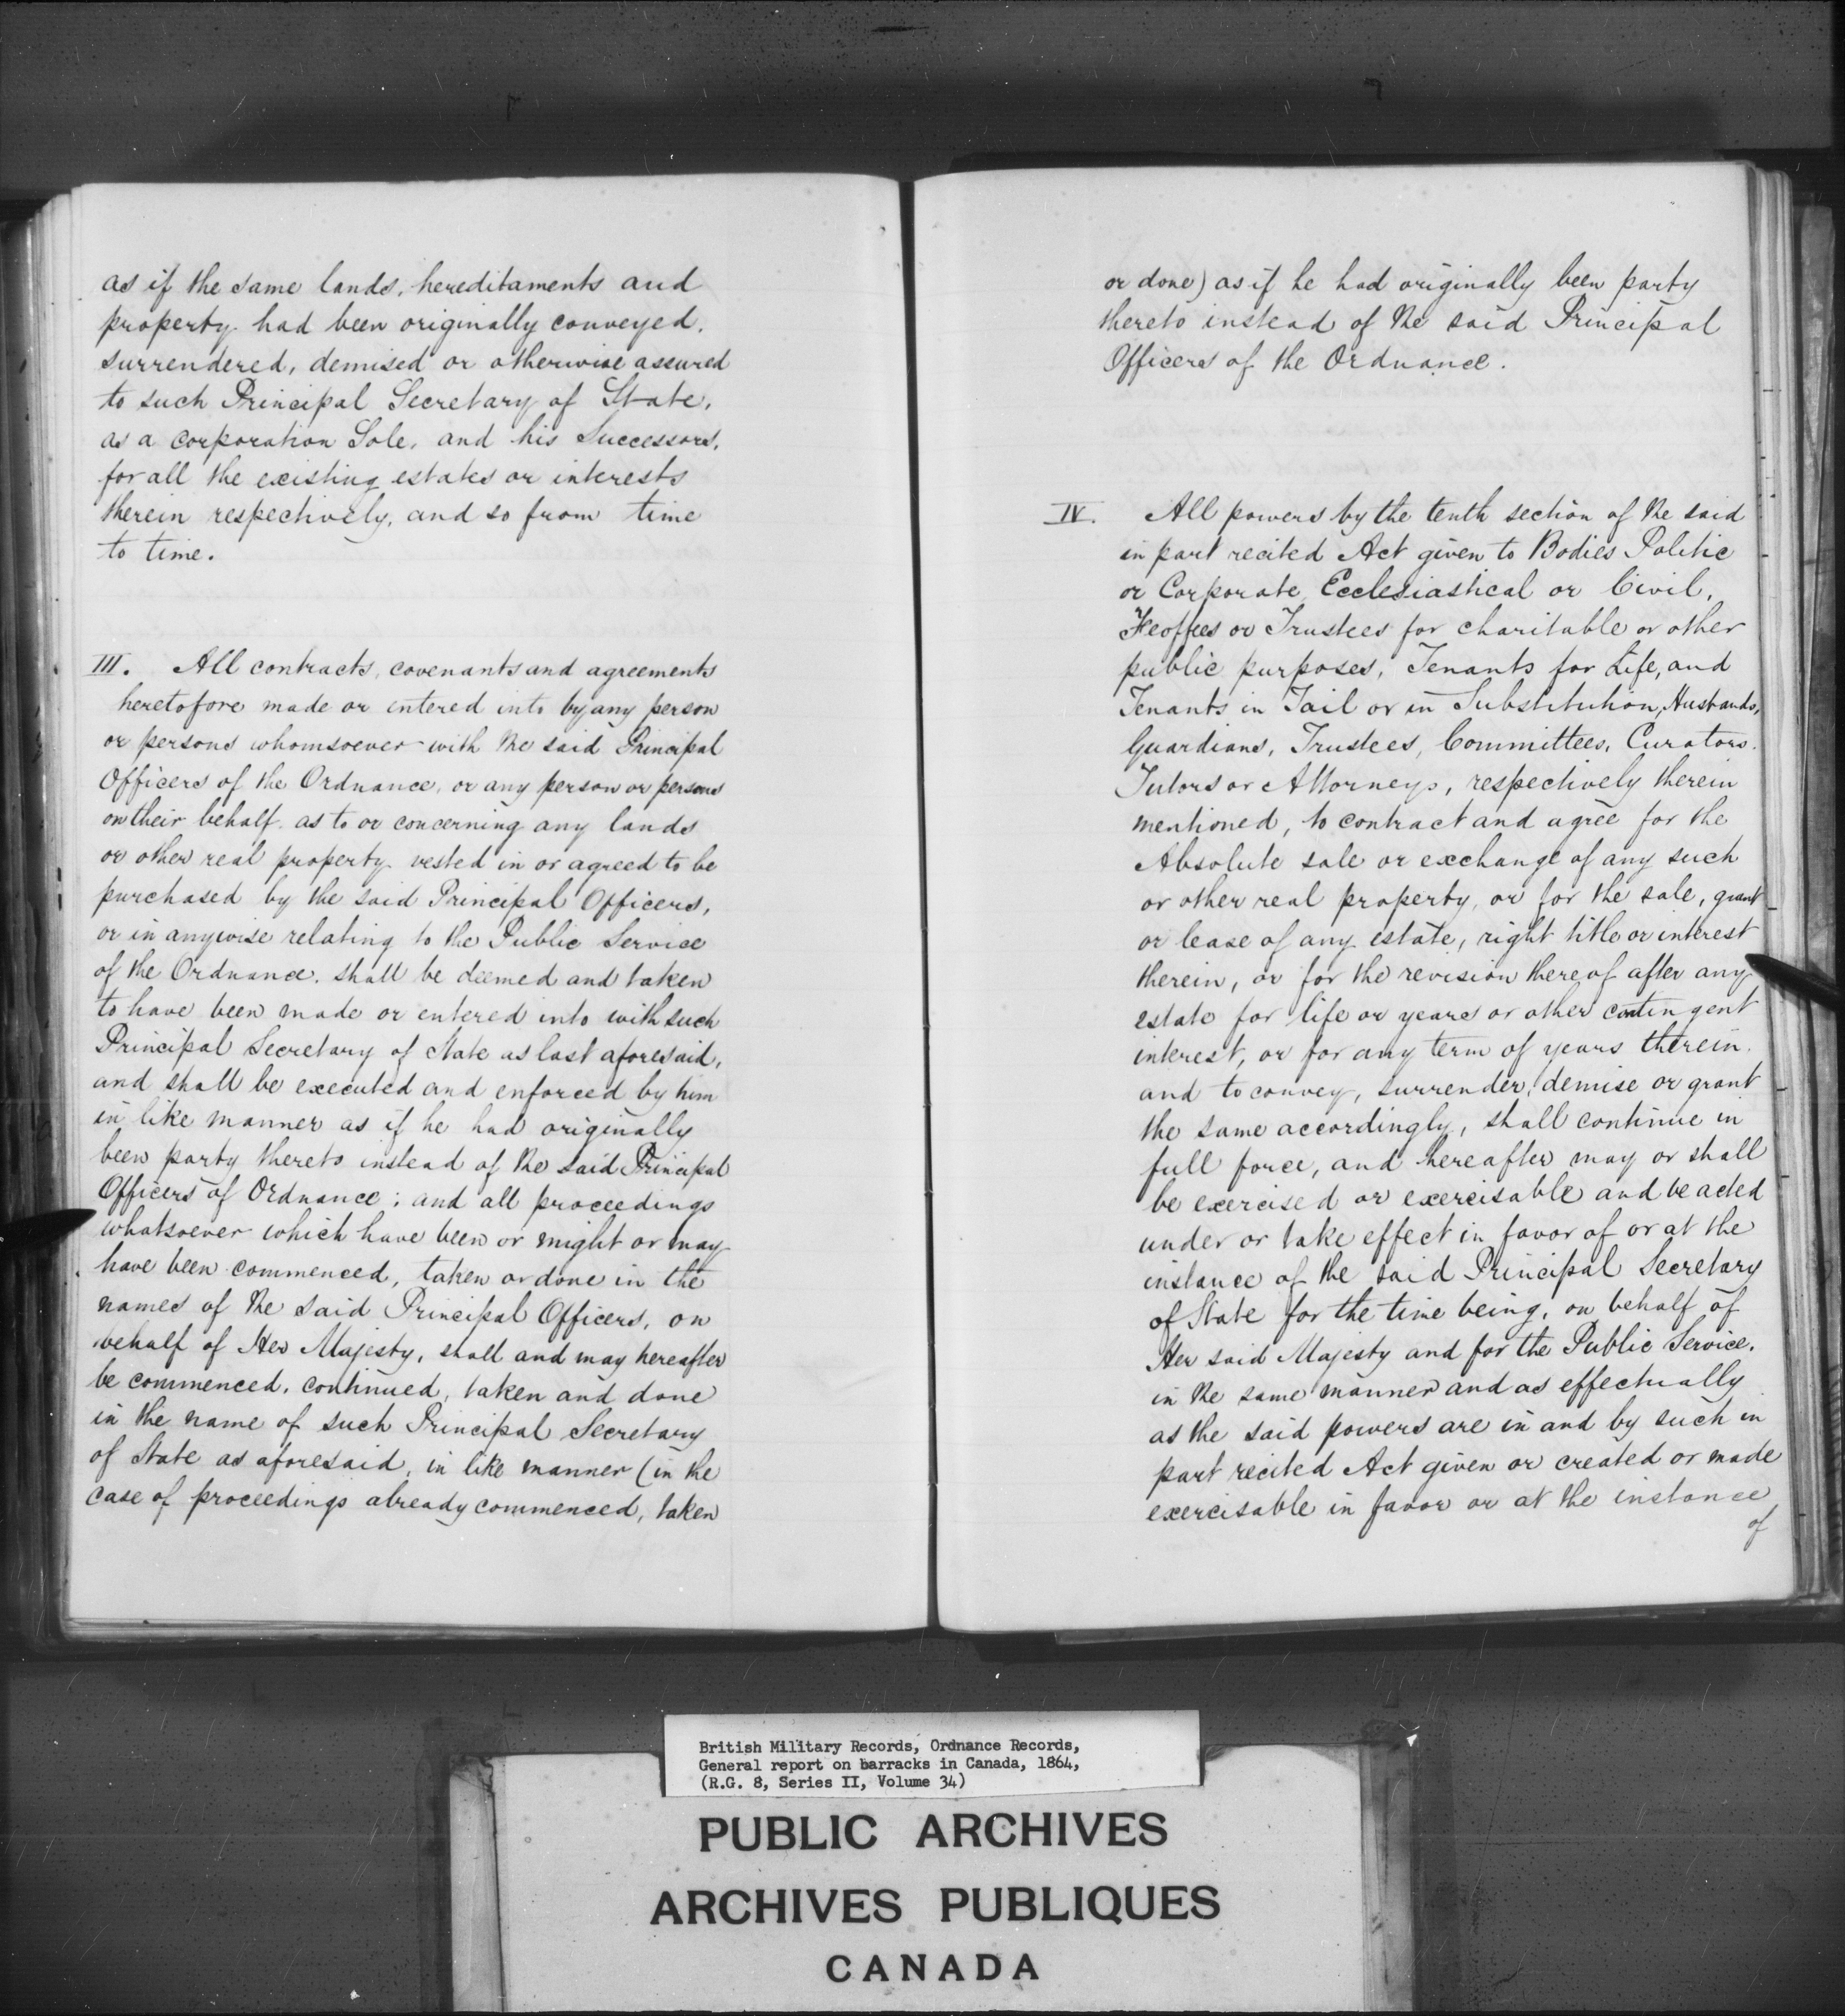 as if the same lands, hereditaments and
property had been originally conveyed,
surrendered, demised or otherwise assured
to such Principal Secretary of State,
as a Corporation Sole, and his Successors,
for all the existing estates or interests
therein respectively, and so from time
to time.
III. All contracts, covenants and agreements
heretofore made or entered into by any person
or persons whomsoever with the said Principal
Officers of the Ordnance, or any person or persons
on their behalf as to or concerning any lands
or other real property vested in or agreed to be
purchased by the said Principal Officers,
or in anywise relating to the Public Service
of the Ordnance, shall be deemed and taken
to have been made or entered into with such
Principal Secretary of State as last aforesaid,
and shall be executed and enforced by him
in like manner as if he had originally
been party thereto instead of the said Principal
Officers of Ordnance; and all proceedings
whatsoever which have been or might or may
have been commenced, taken or done in the
names of the said Principal Officers, on
behalf of Her Majesty, shall and may hereafter
be commenced, continued, taken and done
in the name of such Principal Secretary
of State as aforesaid, in like manner (in the
case of proceedings already commenced, taken
or done) as if he had originally been party
thereto instead of the said Principal
Officers of the Ordnance.
IV. All powers by the tenth section of the said
in part recited Act given to Bodies Politic
or Corporate, Ecclesiastical or Civil,
Feoffees or Trustees for charitable or other
public purposes, Tenants for Life, and
Tenants in Tail or in Substitution, Husbands,
Guardians, Trustees, Committees, Curators,
Tutors or Attorneys, respectively therein
mentioned, to contract and agree for the
Absolute sale or exchange of any such
or other real property, or for the sale, grant
or lease of any estate, right title or interest
therein, or for the revision thereof after any
estate for life or years or other contingent
interest, or for any term of years therein.
and to convey, surrender, demise or grant
the same accordingly, shall continue in
full force, and hereafter may or shall
be exercised or exercisable and be acted
under or take effect in favor of or at the
instance of the said Principal Secretary
of State for the time being, on behalf of
Her said Majesty and for the Public Service,
in the same manner and as effectually
as the said powers are in and by such in
part recited Act given or created or made
exercisable in favor or at the instance
of
British Military Records, Ordnance Records,
General report on barracks in Canada, 1864,
(R.G. 8, Series II, Volume 34)
PUBLIC ARCHIVES
ARCHIVES PUBLIQUES
CANADA